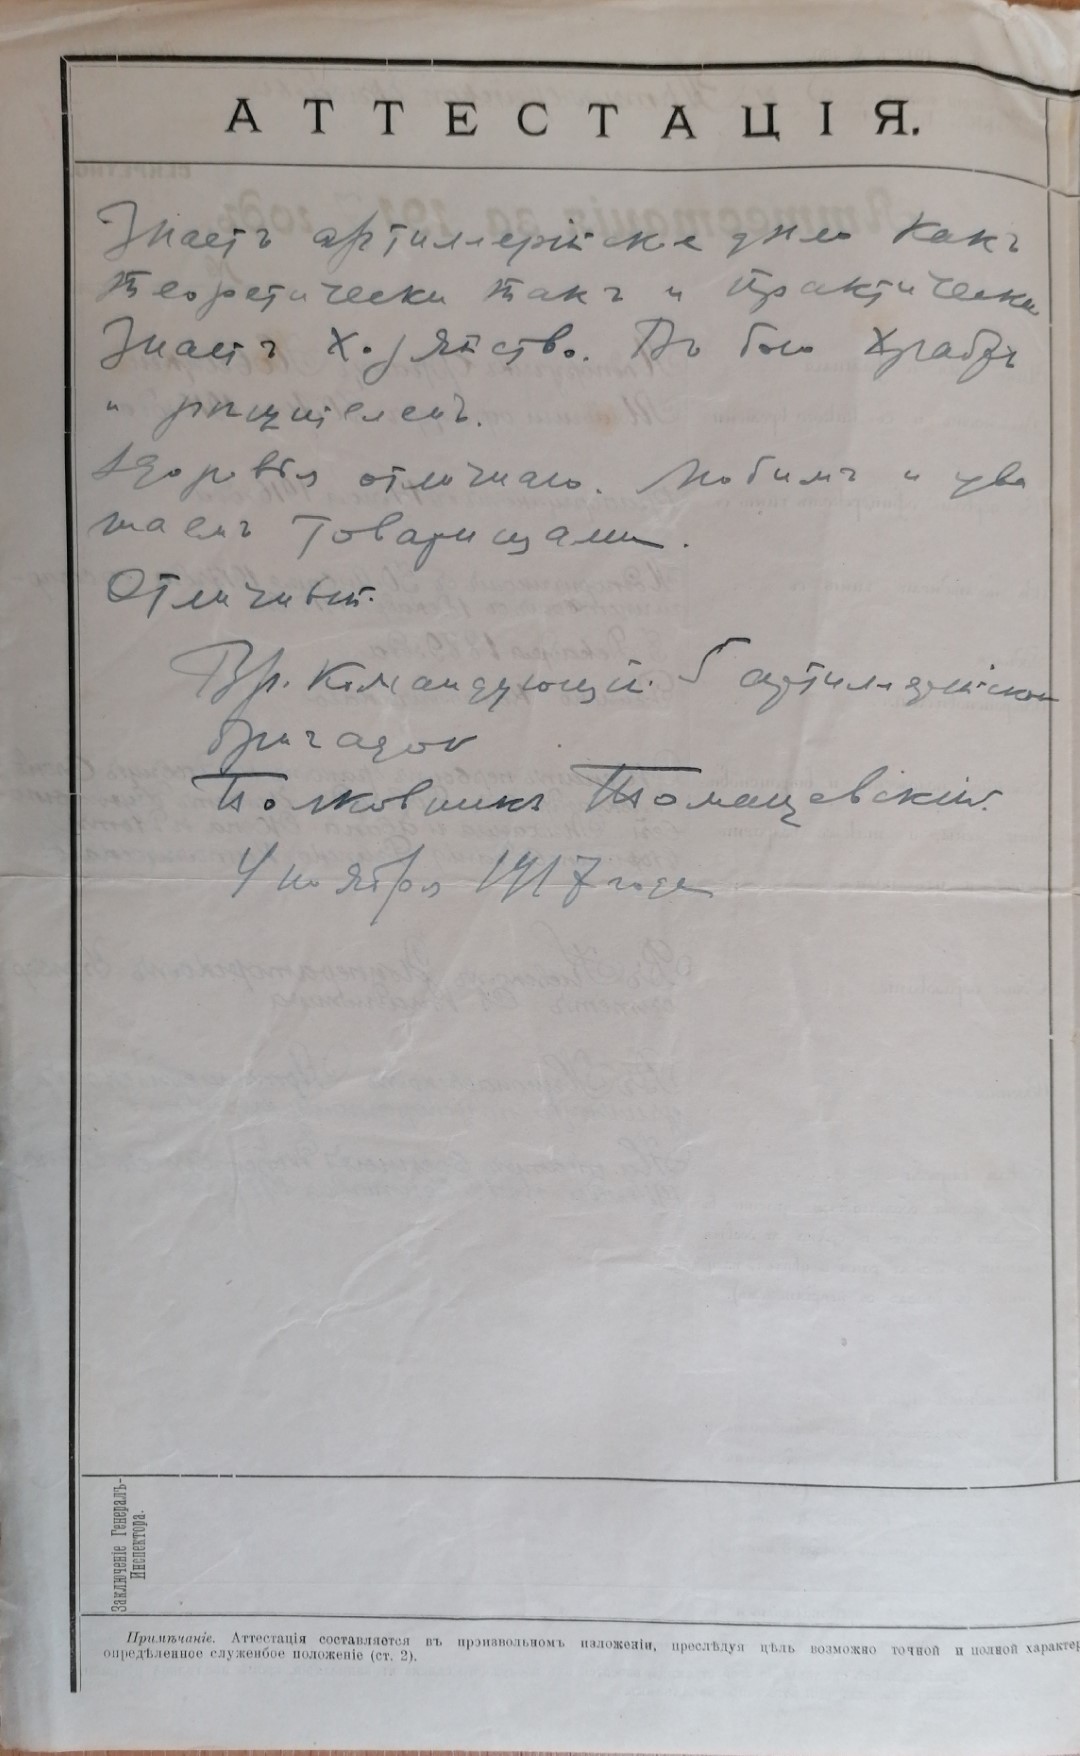 АТТЕСТАЦІЯ.
Знаетъ артиллерійское дѣло какъ
теоретически такъ и практически
Знаетъ хозяйство. Въ бою храбръ
и рѣшителенъ.
Здоровья отличнаго. Любимъ и ува
жаемъ товарищами.
Отличный.
Вр. Командующій 5 артиллерійской
бригадой
Полковникъ Томашевскій.
4 ноября 1917 года
Заключеніе Генералъ-
Инспектора.
Примѣчаніе. Аттестація составляется въ произвольномъ изложеніи, преслѣдуя цѣль возможно точной и полной характер
опредѣленное служебное положеніе (ст. 2).